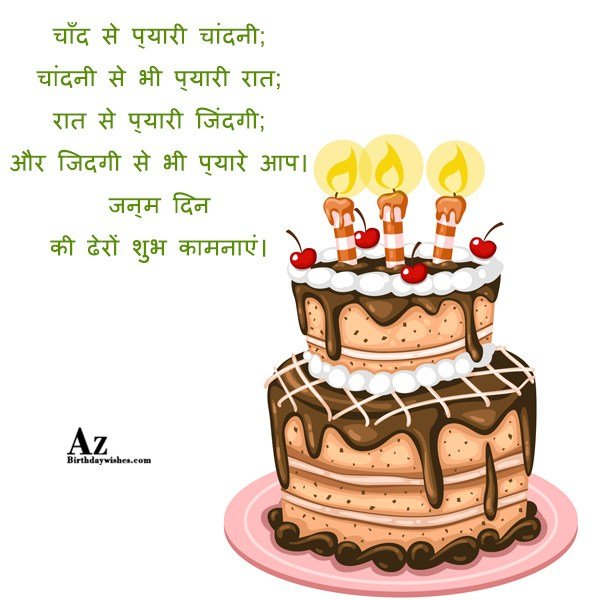 चाँद से प्यारी चांदनी;
चांदनी से भी प्यारी रात;
रात से प्यारी जिंदगी;
और जिदगी से भी प्यारे आप।
जन्म दिन
की ढेरों शुभ कामनाएं।
Az
Birthdaywishes.com